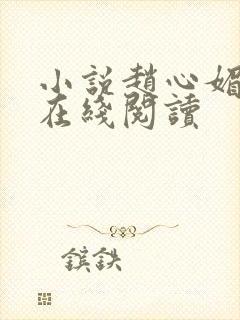 小說趙心媚
在綫閱讀
鑌鉄